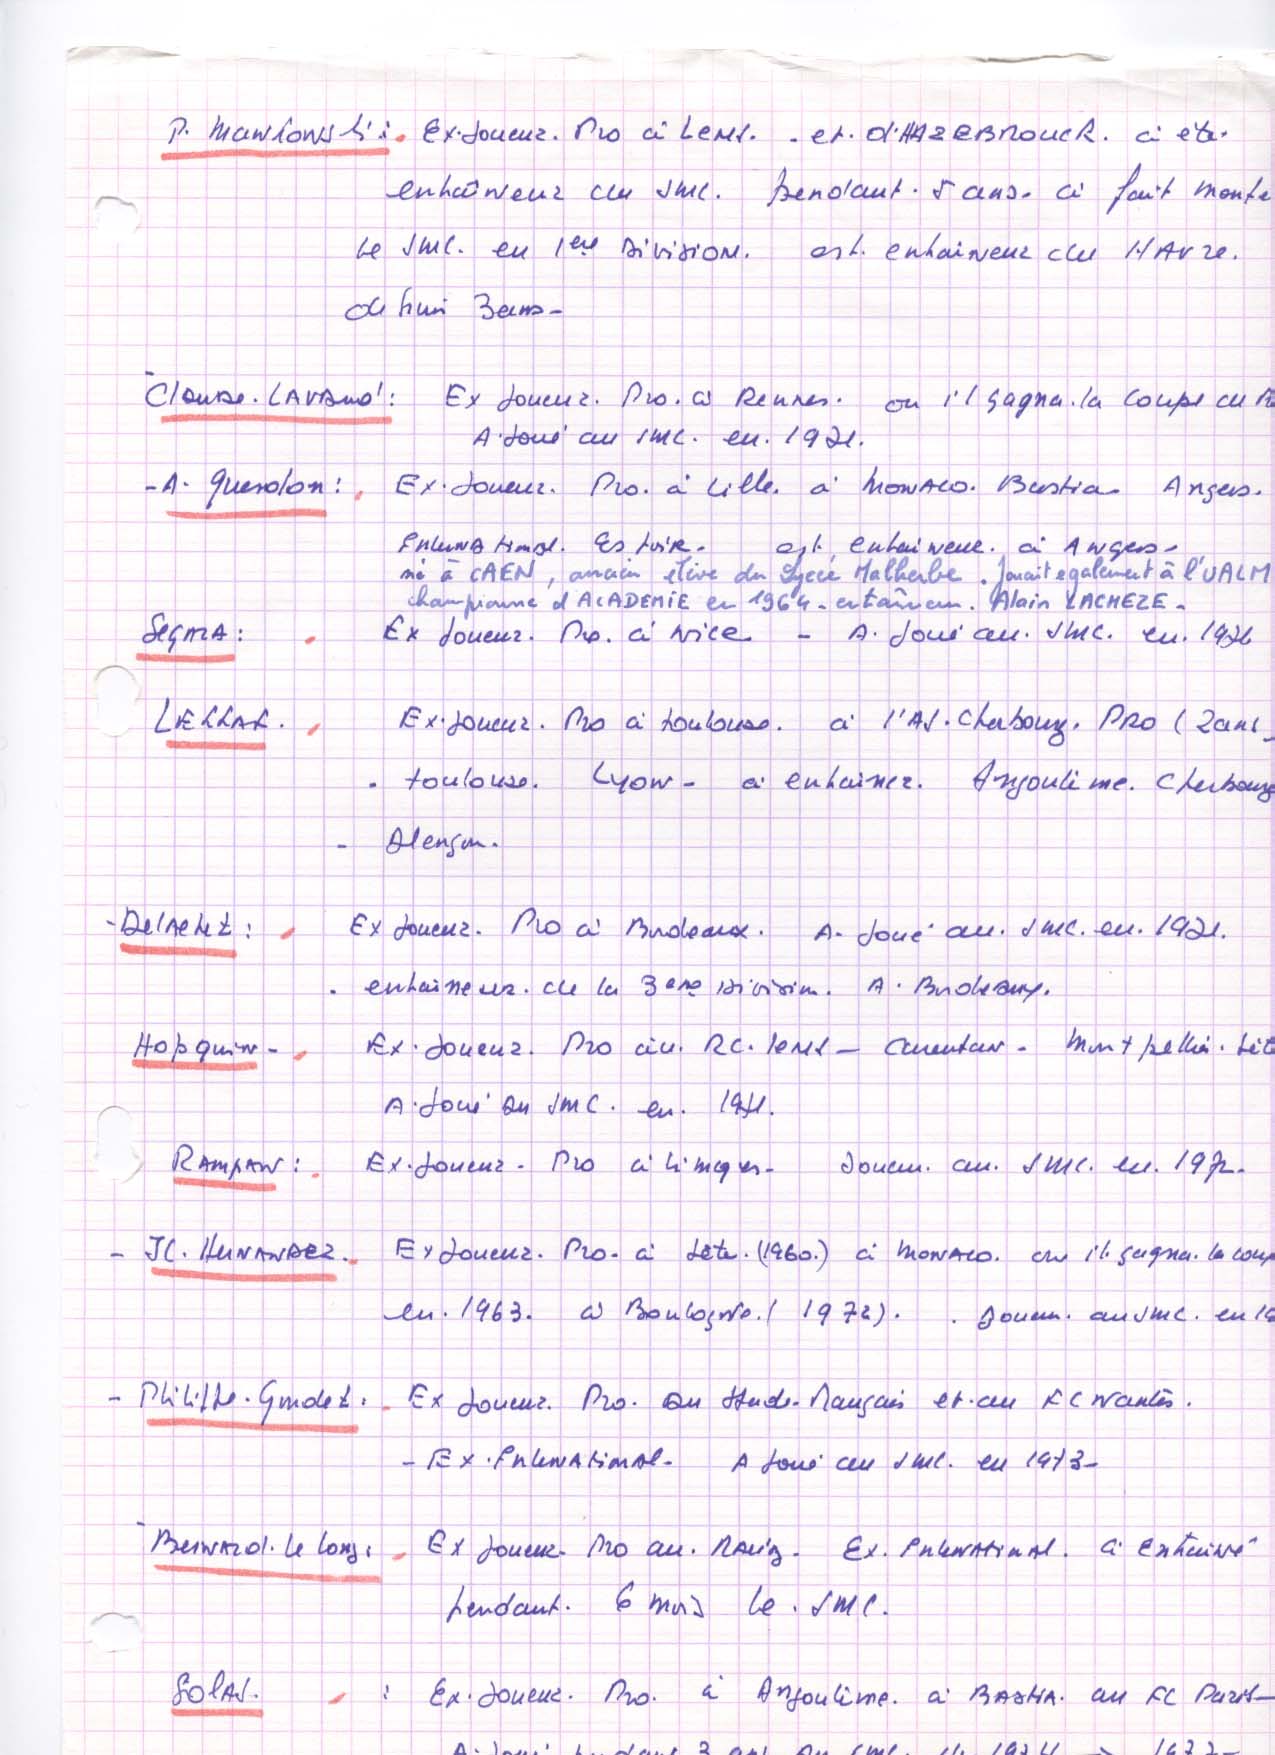 P. Mankowski : Ex. Joueur. Pro à Lens. - et. d'HAZEBROUCK. a été.
entraîneur du SMC. Pendant. 5 ans. a fait monte
le SMC. en 1ere Division. est. entraineur du HAvre.
depuis 3 ans -
- Claude. LAVAUD : Ex Joueur. Pro. à Rennes. ou i'l gagna. la Coupe du
A. Joué au SMC. en. 1971.
- A. Guesdon : Ex. Joueur. Pro. à Lille. à MONACO. Bastia. Angers.
International. Espoir. est entraineur. à Angers -
né à CAEN, ancien élève du Lycée Malherbe. Jouait également à l'UALM
championne d'ACADEMIE en 1964. entraîneur. Alain LACHEZE -
Segura : Ex Joueur. Pro. à Nice - A. Joué au. SMC. en. 1976
LELLAL. Ex. Joueur. Pro à toulouse. à l'AS. Cherbourg. PRO ( 2 ans -
. toulouse. Lyon - a entrainer. Angoulème. Cherbourg
- Alençon.
- Delachet : Ex Joueur. Pro à Bordeaux. A. Joué au. SMC. en. 1971.
. entraineur. de la 3eme Division. A. Bordeaux.
Hopquin - Ex. Joueur. Pro au. RC. lens - Carentan - Montpellier. Sète
A. Joué au SMC. en. 1971.
RAMPAN : Ex. Joueur - Pro à Limoges - Joueur. au. SMC. en. 1972.
- JC. HERNANDEZ. Ex Joueur. Pro. à Sète. (1960.) à MONACO. ou i'l gagna. la coup
en. 1963. à Boulogne. ( 1972). . Joueur. au SMC. en 19
- Philippe. Gondet : Ex Joueur. Pro. au Stade. Français et. au FC Nantes.
- Ex. International. A Joué au SMC. en 1973 -
- Bernard. Le Long : Ex Joueur. Pro au. Racing. Ex. International. a entraîné
pendant. 6 mois le. SMC.
Solas. : Ex. Joueur. Pro. à Angoulème. à BASTIA. au FC Paris -
A. Joué pendant 3 ans au SMC. de 1974 → 1977 -